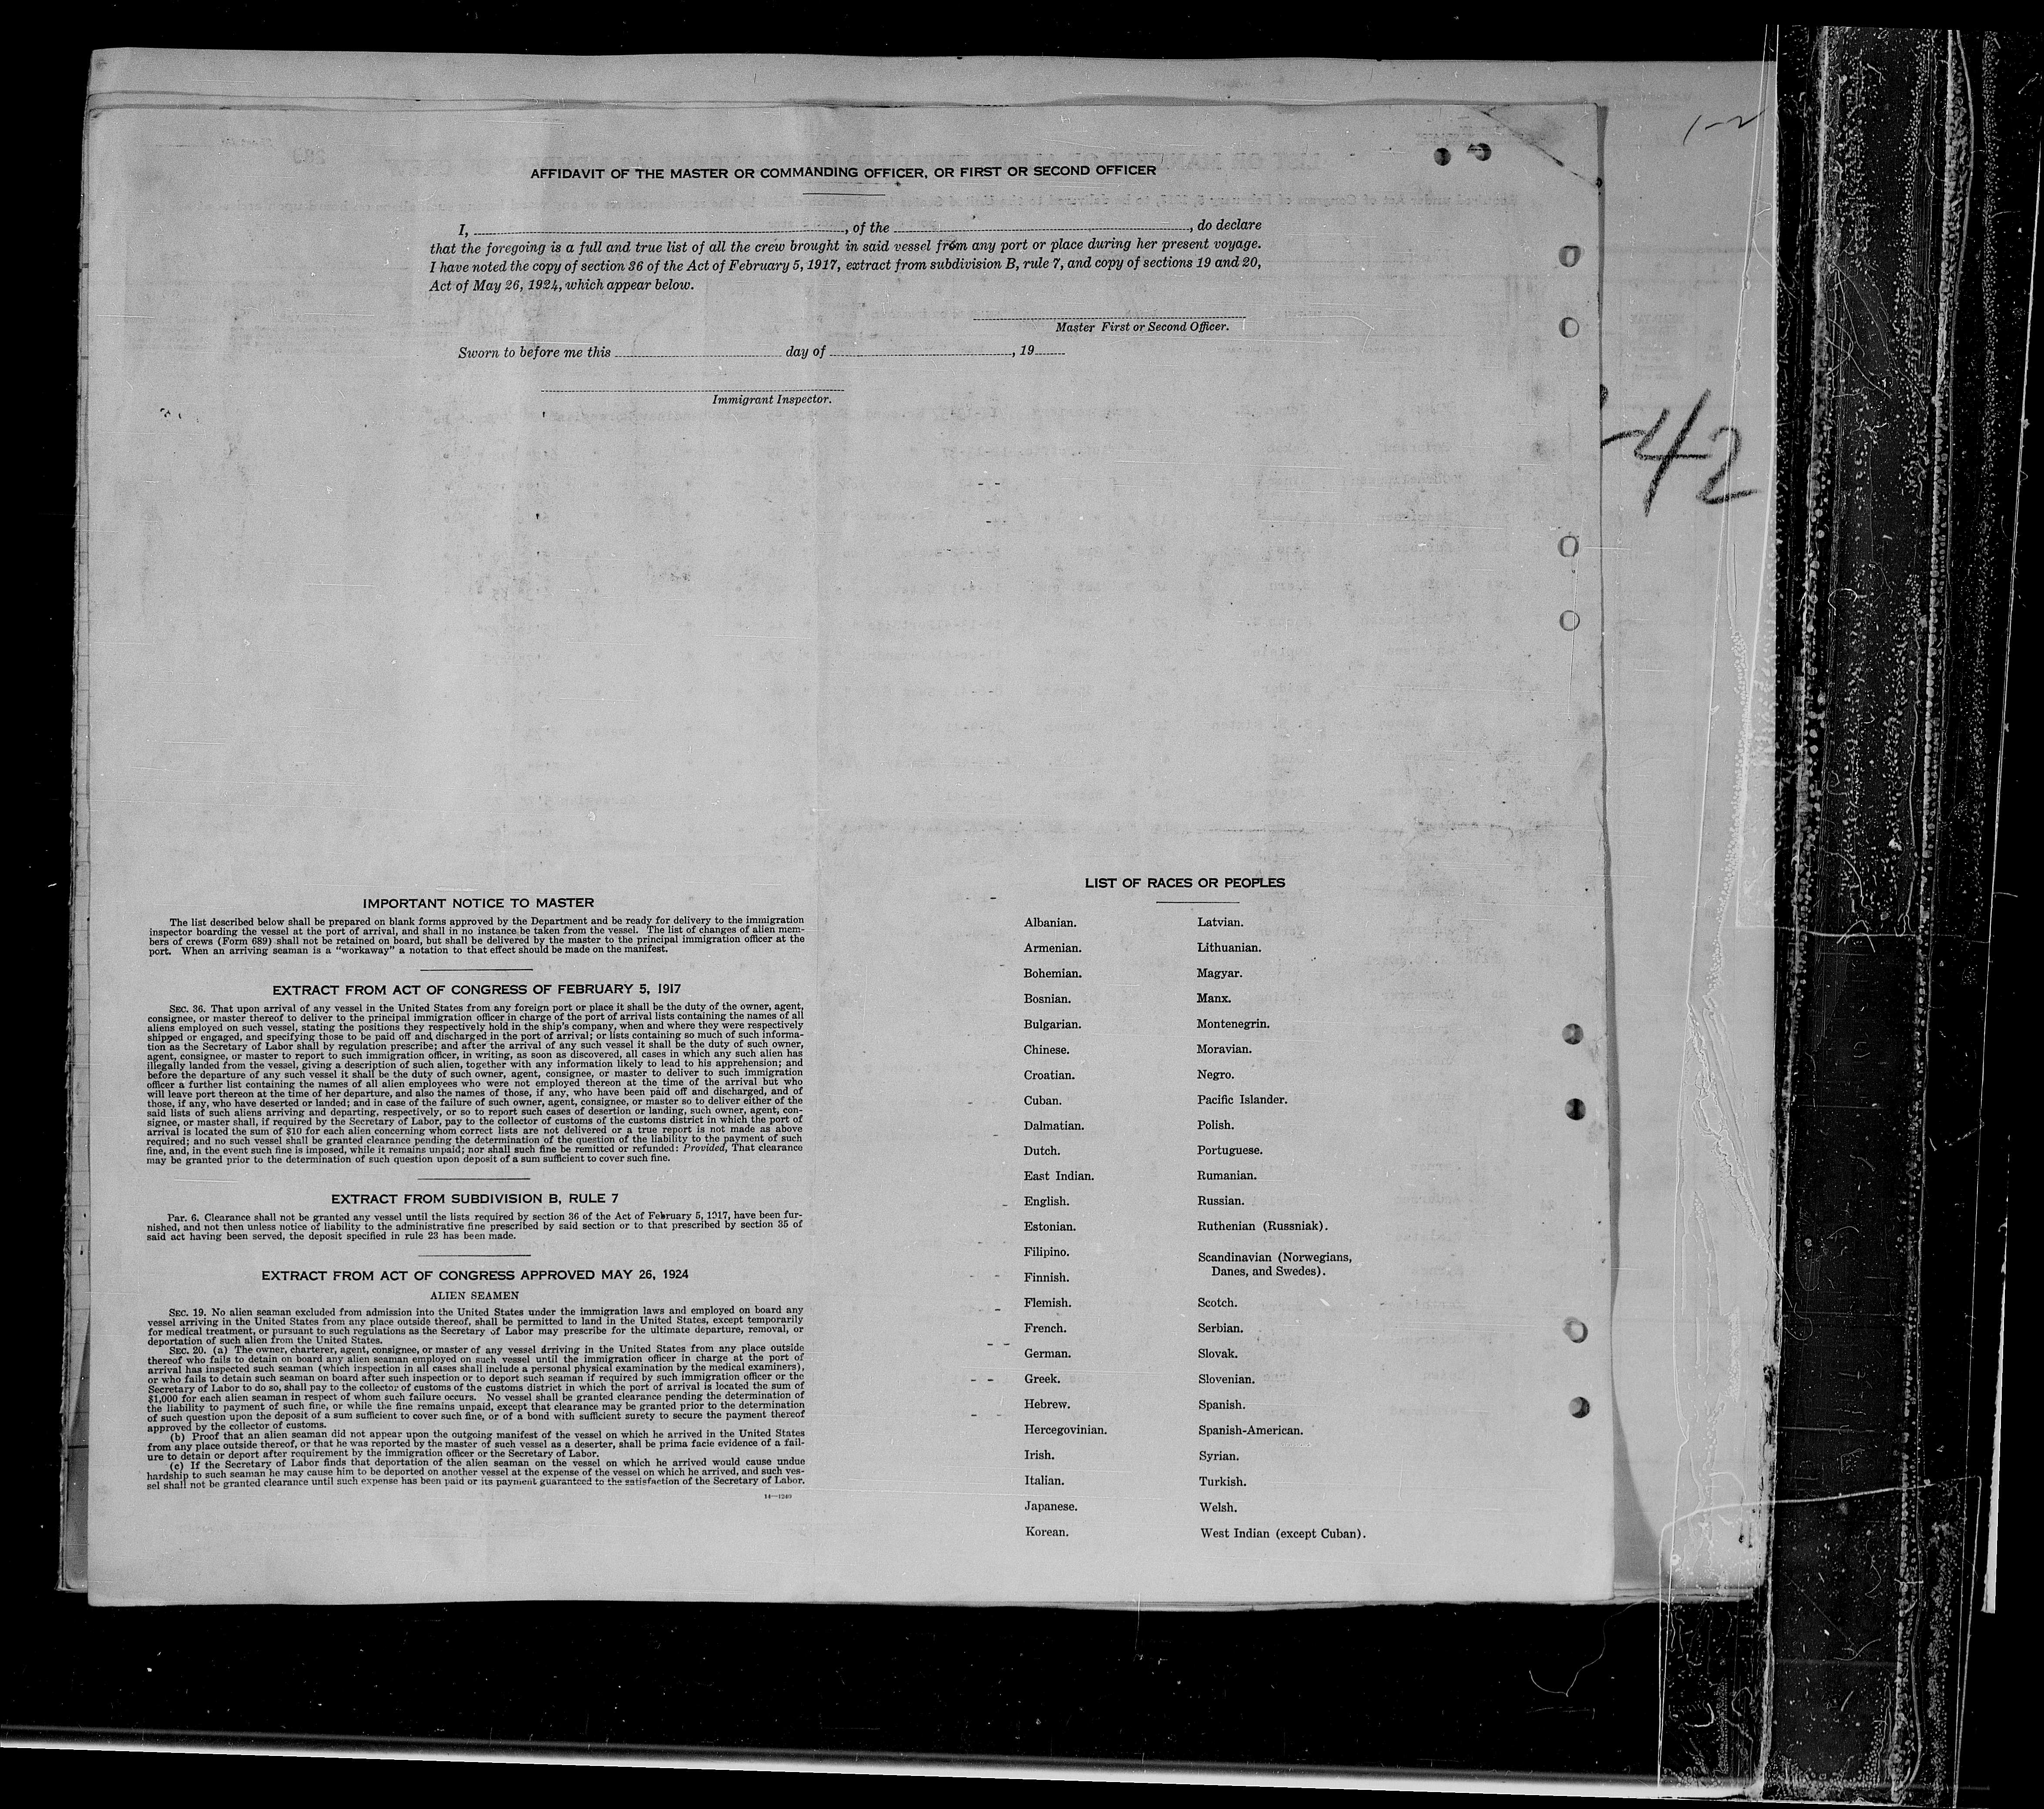 AFFIDAVIT OF THE MASTER OR COMMANDING OFFICER, OR FIRST OR SECOND OFFICER
I, , of the , do declare
that the foregoing is a full and true list of all the crew brought in said vessel from any port or place during her present voyage.
I have noted the copy of section 36 of the Act of February 5, 1917, extract from subdivision B, rule 7, and copy of sections 19 and 20,
Act of May 26, 1924, which appear below.
Master First or Second Officer.
Sworn to before me this day of , 19
Immigrant Inspector.
1-2
-42
IMPORTANT NOTICE TO MASTER
The list described below shall be prepared on blank forms approved by the Department and be ready for delivery to the immigration
inspector boarding the vessel at the port of arrival, and shall in no instance be taken from the vessel. The list of changes of alien mem-
bers of crews (Form 689) shall not be retained on board, but shall be delivered by the master to the principal immigration officer at the
port. When an arriving seaman is a "workaway" a notation to that effect should be made on the manifest.
EXTRACT FROM ACT OF CONGRESS OF FEBRUARY 5, 1917
SEC. 36. That upon arrival of any vessel in the United States from any foreign port or place it shall be the duty of the owner, agent,
consignee, or master thereof to deliver to the principal immigration officer in charge of the port of arrival lists containing the names of all
aliens employed on such vessel, stating the positions they respectively hold in the ship's company, when and where they were respectively
shipped or engaged, and specifying those to be paid off and discharged in the port of arrival; or lists containing so much of such informa-
tion as the Secretary of Labor shall by regulation prescribe; and after the arrival of any such vessel it shall be the duty of such owner,
agent, consignee, or master to report to such immigration officer, in writing, as soon as discovered, all cases in which any such alien has
illegally landed from the vessel, giving a description of such alien, together with any information likely to lead to his apprehension; and
before the departure of any such vessel it shall be the duty of such owner, agent, consignee, or master to deliver to such immigration
officer a further list containing the names of all alien employees who were not employed thereon at the time of the arrival but who
will leave port thereon at the time of her departure, and also the names of those, if any, who have been paid off and discharged, and of
those, if any, who have deserted or landed; and in case of the failure of such owner, agent, consignee, or master so to deliver either of the
said lists of such aliens arriving and departing, respectively, or so to report such cases of desertion or landing, such owner, agent, con-
signee, or master shall, if required by the Secretary of Labor, pay to the collector of customs of the customs district in which the port of
arrival is located the sum of $10 for each alien concerning whom correct lists are not delivered or a true report is not made as above
required; and no such vessel shall be granted clearance pending the determination of the question of the liability to the payment of such
fine, and, in the event such fine is imposed, while it remains unpaid; nor shall such fine be remitted or refunded: Provided, That clearance
may be granted prior to the determination of such question upon deposit of a sum sufficient to cover such fine.
EXTRACT FROM SUBDIVISION B, RULE 7
Par. 6. Clearance shall not be granted any vessel until the lists required by section 36 of the Act of February 5, 1917, have been fur-
nished, and not then unless notice of liability to the administrative fine prescribed by said section or to that prescribed by section 35 of
said act having been served, the deposit specified in rule 23 has been made.
EXTRACT FROM ACT OF CONGRESS APPROVED MAY 26, 1924
ALIEN SEAMEN
SEC. 19. No alien seaman excluded from admission into the United States under the immigration laws and employed on board any
vessel arriving in the United States from any place outside thereof, shall be permitted to land in the United States, except temporarily
for medical treatment, or pursuant to such regulations as the Secretary of Labor may prescribe for the ultimate departure, removal, or
deportation of such alien from the United States.
SEC. 20. (a) The owner, charterer, agent, consignee, or master of any vessel arriving in the United States from any place outside
thereof who fails to detain on board any alien seaman employed on such vessel until the immigration officer in charge at the port of
arrival has inspected such seaman (which inspection in all cases shall include a personal physical examination by the medical examiners),
or who fails to detain such seaman on board after such inspection or to deport such seaman if required by such immigration officer or the
Secretary of Labor to do so, shall pay to the collector of customs of the customs district in which the port of arrival is located the sum of
$1,000 for each alien seaman in respect of whom such failure occurs. No vessel shall be granted clearance pending the determination of
the liability to payment of such fine, or while the fine remains unpaid, except that clearance may be granted prior to the determination
of such question upon the deposit of a sum sufficient to cover such fine, or of a bond with sufficient surety to secure the payment thereof
approved by the collector of customs.
(b) Proof that an alien seaman did not appear upon the outgoing manifest of the vessel on which he arrived in the United States
from any place outside thereof, or that he was reported by the master of such vessel as a deserter, shall be prima facie evidence of a fail-
ure to detain or deport after requirement by the immigration officer or the Secretary of Labor.
(c) If the Secretary of Labor finds that deportation of the alien seaman on the vessel on which he arrived would cause undue
hardship to such seaman he may cause him to be deported on another vessel at the expense of the vessel on which he arrived, and such ves-
sel shall not be granted clearance until such expense has been paid or its payment guaranteed to the satisfaction of the Secretary of Labor.
14—1240
LIST OF RACES OR PEOPLES
Albanian.
Armenian.
Bohemian.
Bosnian.
Bulgarian.
Chinese.
Croatian.
Cuban.
Dalmatian.
Dutch.
East Indian.
English.
Estonian.
Filipino.
Finnish.
Flemish.
French.
German.
Greek.
Hebrew.
Hercegovinian.
Irish.
Italian.
Japanese.
Korean.
Latvian.
Lithuanian.
Magyar.
Manx.
Montenegrin.
Moravian.
Negro.
Pacific Islander.
Polish.
Portuguese.
Rumanian.
Russian.
Ruthenian (Russniak).
Scandinavian (Norwegians,
Danes, and Swedes).
Scotch.
Serbian.
Slovak.
Slovenian.
Spanish.
Spanish-American.
Syrian.
Turkish.
Welsh.
West Indian (except Cuban).